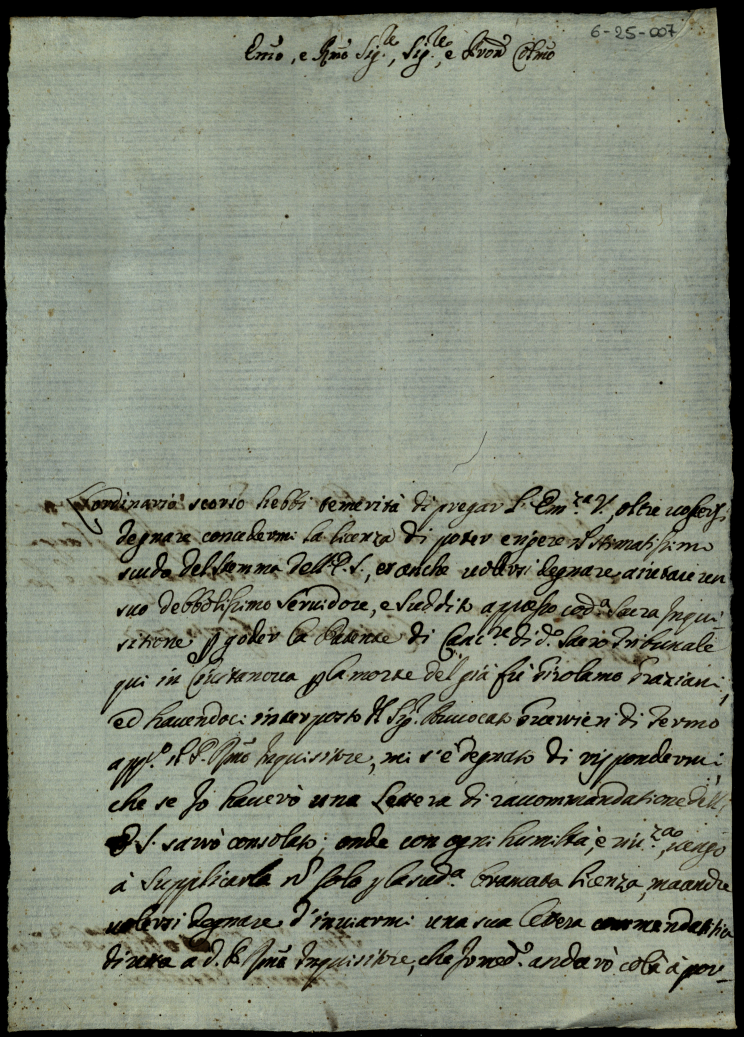 6-25-007
Emo, e Rmo Sig.re, Sig.re, e Pron Colmo
L'ordinario scorso hebbi temerità di pregar l'Em.za V., oltre volersi
degnare concedermi la licenza di poter erigere il stimatissimo
scudo del stemma dell'E. S., et anche volersi degnare aiutare un
suo debbolissimo servidore, e suddito appresso cod.a Sacra Inqui
sitione p goder la Patente di Canc.re di d.o Sacro Tribunale
qui in Civitanova p la morte del già fù Girolamo Graziani,
ed havendoci interposto il Sig.r Avvocato di Fermo
app.o il P. Rmo Inquisitore, mi s'è degnato di rispondermi
che se Io haverò una Lettera di raccommandatione dell'
E. S. sarrò consolato; onde con ogni humiltà, e riv.za, vengo
à supplicarla nò solo p la sud.a bramata licenza, ma anche
volersi degnare d'inviarmi una sua lettera commendatitia
diretta a d. P. Rmo Inquisitore, che Io med.o anderò colà à por-